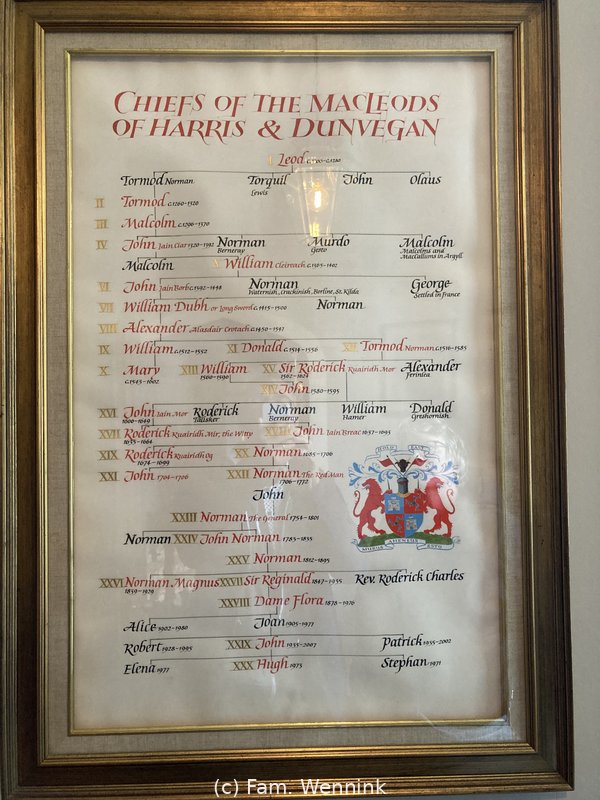 CHIEFS OF THE MACLEODS
OF HARRIS & DUNVEGAN
I Leod c.1200-c.1280
Tormod Norman Torquil John Olaus
Lewis
II Tormod
III Malcolm
IV John Iain Ciar Norman Murdo Malcolm
Berneray Gesto Malcolms and
MacCallums in Argyll
Malcolm V William Cleireach
VI John Iain Borb Norman George
Waternish, Crackinish, Borline, St. Kilda Settled in France
VII William Dubh or Long Sword Norman
VIII Alexander Alasdair Crotach
IX William XI Donald XII Tormod Norman
X Mary XIII William XV Sir Roderick Ruairidh Mor Alexander
Ferinlea
XIV John 1580-1595
XVI John Iain Mor Roderick Norman William Donald
Talisker Berneray Hamer Greshornish
XVII Roderick Ruairidh Mir, the Witty XVIII John Iain Breac 1637-1693
XIX Roderick Ruairidh Og XX Norman 1685-1706
1674-1699
XXI John 1704-1706 XXII Norman The Red Man
1706-1772
John
XXIII Norman The General 1754-1801
Norman XXIV John Norman 1783-1835
XXV Norman 1812-1895
XXVI Norman Magnus XXVII Sir Reginald 1847-1935 Rev. Roderick Charles
1839-1929
XXVIII Dame Flora 1878-1976
Alice 1902-1980 Joan 1905-1977
Robert 1928-1995 XXIX John 1935-2007 Patrick 1935-2002
Elena 1977 XXX Hugh 1973 Stephan 1971
HOLD FAST
(c) Fam. Wennink